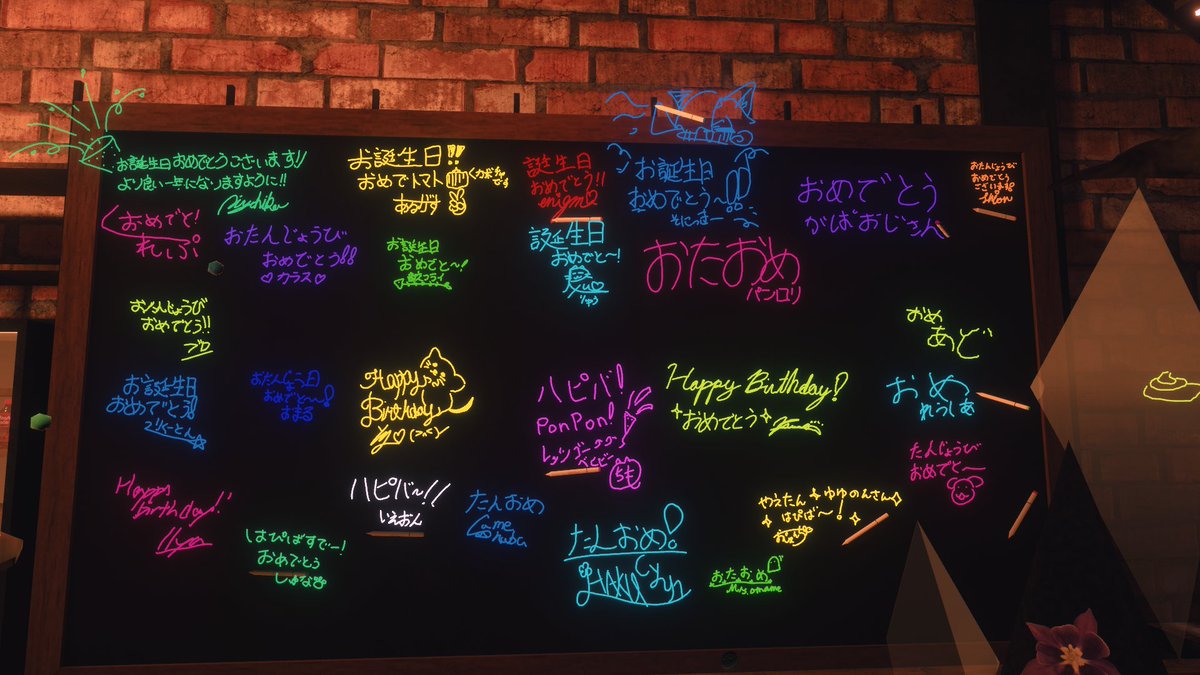 お誕生日おめでとうございます!!
より良い一年になりますように!!
お誕生日!!
おめでトマト
くカボチャです
あるがす
誕生日
おめでとう!!
enigma
お誕生日
おめでと〜う!!
そにっまー
おめでとう
がばおじさん
おたんじょうび
おめでとう
ございます
おめでと!
れいぷ
おたんじょうび
おめでとう!!
♡カラス♡
お誕生日
おめでと〜!
誕生日
おめでと〜!
りゅう
おたおめ
パンロリ
おたんじょうび
おめでとう!!
プロ
おめ
あど
お誕生日
おめでとう!
おたんじょう日
おめでと〜!
すまる
Happy
Birthday
ハピバ!
PonPon!
レッツゴー
べくビー
Happy Birthday!
おめでとう
おめ
れうしあ
たんじょうび
おめでと〜
Happy
Birthday!!
ハピバ〜!!
いえおん
たんおめ
はぴばすでー!
おめでとう
しゅな
たんおめ!
HAKU
やえたん ゆゆのんさん
はぴば〜!
おたおめ
Mrs.omame